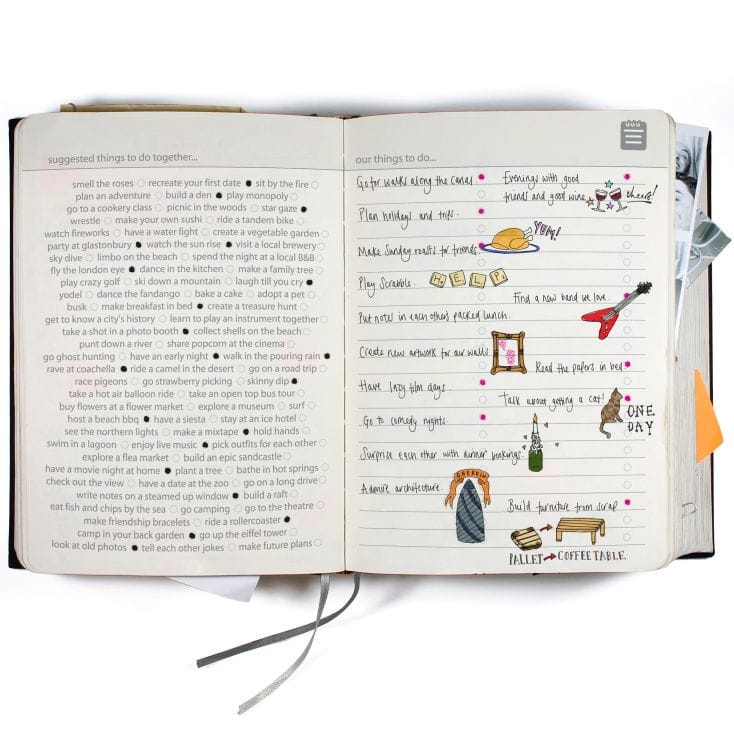 suggested things to do together...
smell the roses recreate your first date sit by the fire
plan an adventure build a den play monopoly
go to a cookery class picnic in the woods star gaze
wrestle make your own sushi ride a tandem bike
watch fireworks have a water fight create a vegetable garden
party at glastonbury watch the sun rise visit a local brewery
sky dive limbo on the beach spend the night at a local B&B
fly the london eye dance in the kitchen make a family tree
play crazy golf ski down a mountain laugh till you cry
yodel dance the fandango bake a cake adopt a pet
busk make breakfast in bed create a treasure hunt
get to know a city's history learn to play an instrument together
take a shot in a photo booth collect shells on the beach
punt down a river share popcorn at the cinema
go ghost hunting have an early night walk in the pouring rain
rave at coachella ride a camel in the desert go on a road trip
race pigeons go strawberry picking skinny dip
take a hot air balloon ride take an open top bus tour
buy flowers at a flower market explore a museum surf
host a beach bbq have a siesta stay at an ice hotel
see the northern lights make a mixtape hold hands
swim in a lagoon enjoy live music pick outfits for each other
explore a flea market build an epic sandcastle
have a movie night at home plant a tree bathe in hot springs
check out the view have a date at the zoo go on a long drive
write notes on a steamed up window build a raft
eat fish and chips by the sea go camping go to the theatre
make friendship bracelets ride a rollercoaster
camp in your back garden go up the eiffel tower
look at old photos tell each other jokes make future plans
our things to do...
Go for walks along the canal
Evenings with good
friends and good wine
cheers!
Plan holidays and trips.
YUM!
Make Sunday roasts for friends.
Play Scrabble.
HELP
Find a new band we love.
Put notes in each others packed lunch.
Create new artwork for our walls
Read the papers in bed
Have lazy film days.
Talk about getting a cat!
ONE
DAY
Go to comedy nights
Surprise each other with dinner bookings.
Admire architecture.
GHERKIN
Build furniture from scrap
PALLET → COFFEE TABLE.